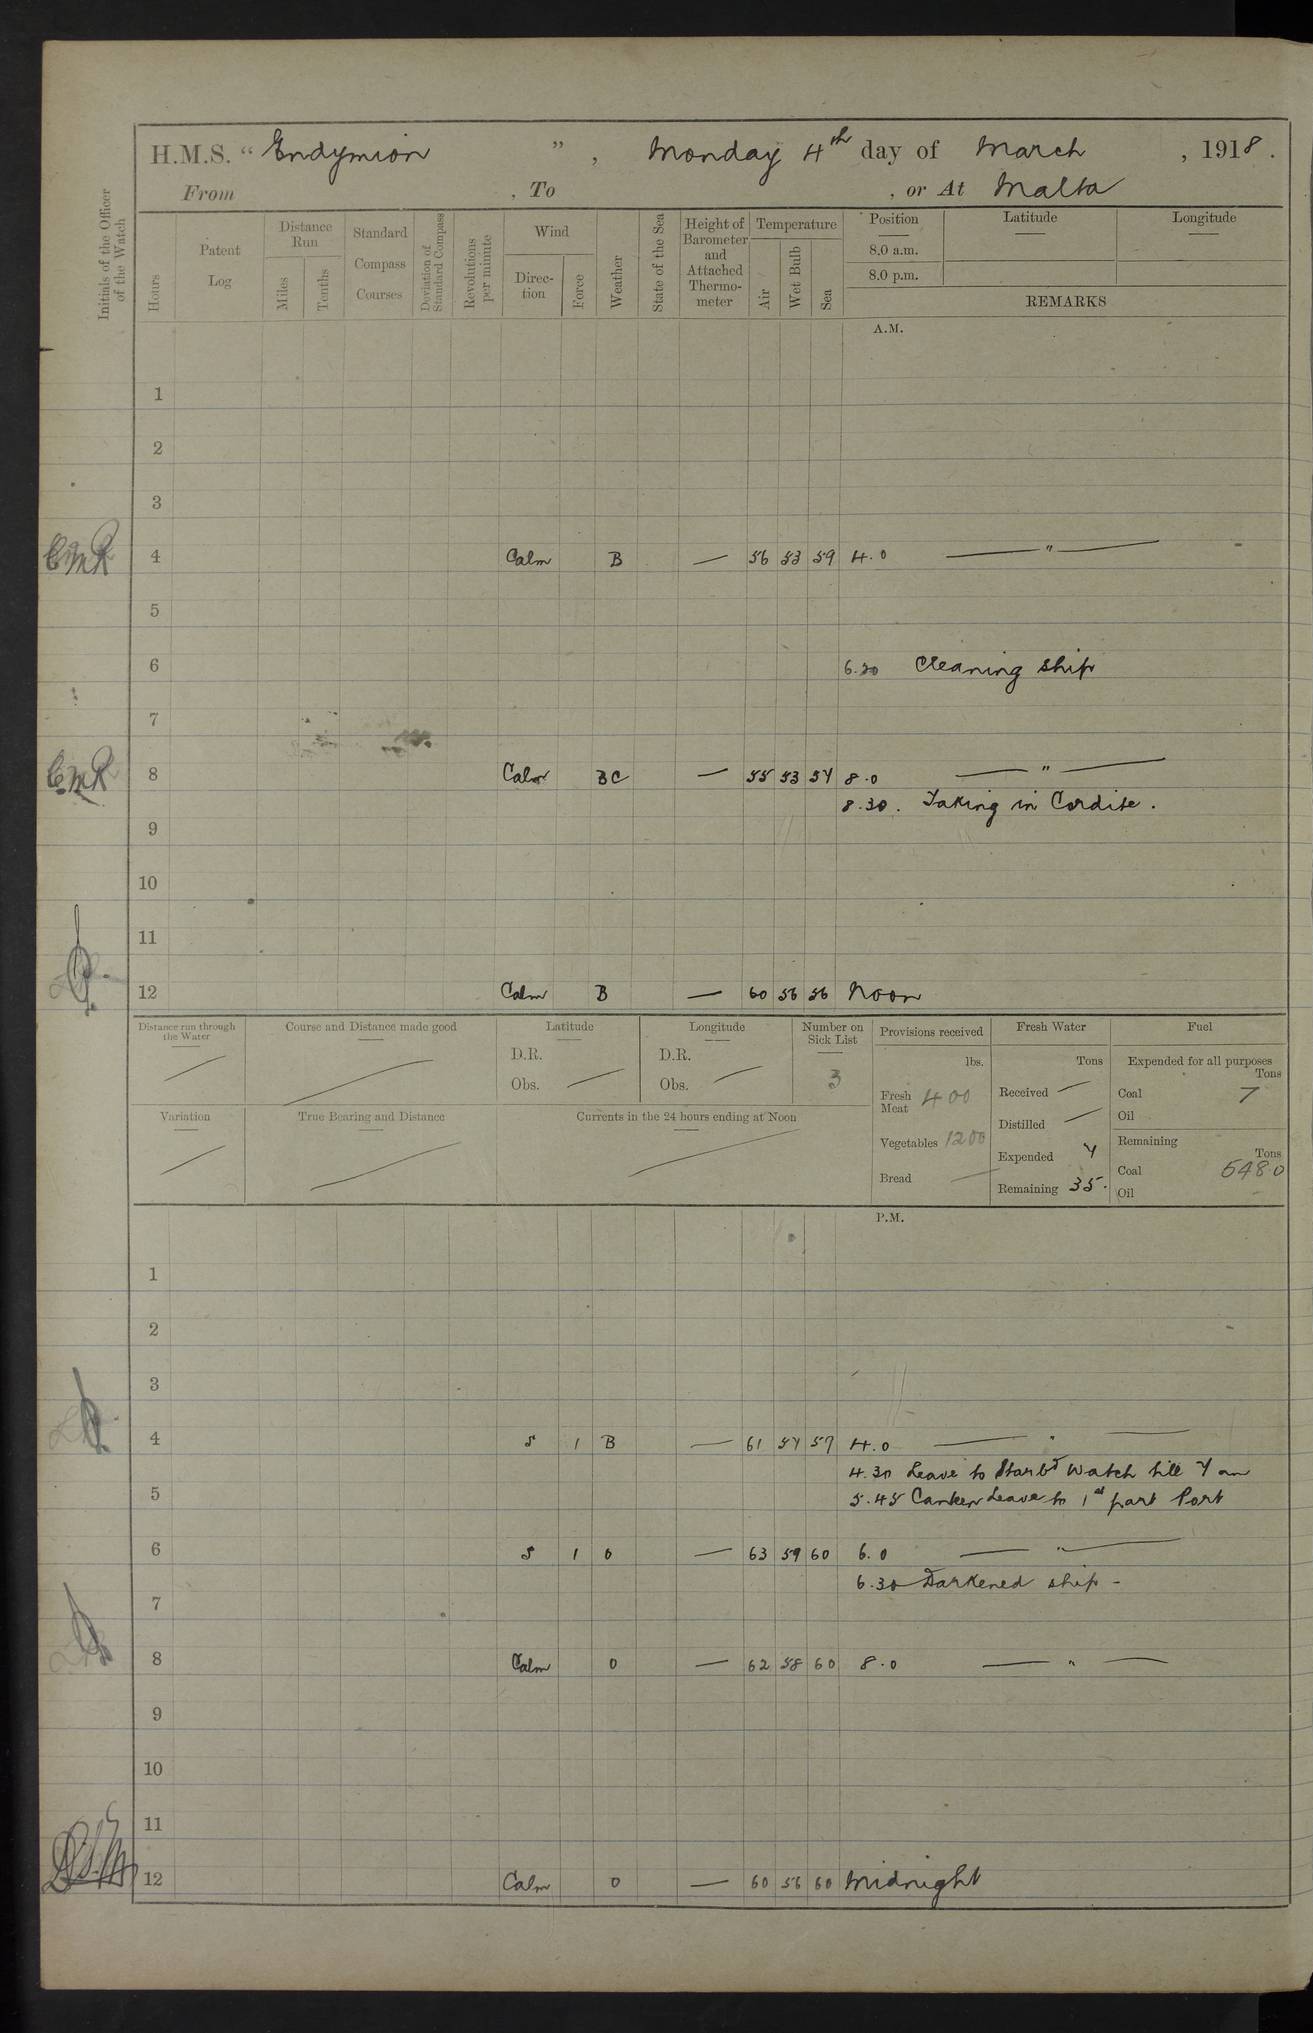 H.M.S. “ Endymion ” , Monday 4th day of March , 1918 .
From , To , or At Malta
Initials of the Officer of the Watch
Hours
Patent Log
Distance Run
Miles
Tenths
Standard Compass Courses
Deviation of Standard Compass
Revolutions per minute
Wind
Direc-tion
Force
Weather
State of the Sea
Height of Barometer and Attached Thermo-meter
Temperature
Air
Wet Bulb
Sea
Position
Latitude
Longitude
8.0 a.m.
8.0 p.m.
REMARKS
A.M.
1
2
3
4 Calm B — 56 53 59 4.0 — " —
5
6 6.30 Cleaning ship
7
8 Calm BC — 55 53 54 8.0 — " —
8.30. Taking in Cordite.
9
10
11
12 Calm B — 60 56 56 Noon
Distance run through the Water
Course and Distance made good
Latitude
D.R.
Obs. —
Longitude
D.R.
Obs. —
Number on Sick List
3
Provisions received
lbs.
Fresh Meat 400
Vegetables 1200
Bread —
Fresh Water
Tons
Received —
Distilled —
Expended 4
Remaining 35.
Fuel
Expended for all purposes
Tons
Coal 7
Oil
Remaining
Tons
Coal 548.0
Oil -
Variation
True Bearing and Distance
Currents in the 24 hours ending at Noon
P.M.
1
2
3
4 S 1 B — 61 54 57 4.0 — " —
4.30 Leave to Starbd Watch till 7 am
5 5.45 Canteen Leave to 1st part Port
6 S 1 O — 63 59 60 6.0 — " —
6.30 Darkened ship -
7
8 Calm O — 62 58 60 8.0 — " —
9
10
11
12 Calm O — 60 56 60 Midnight